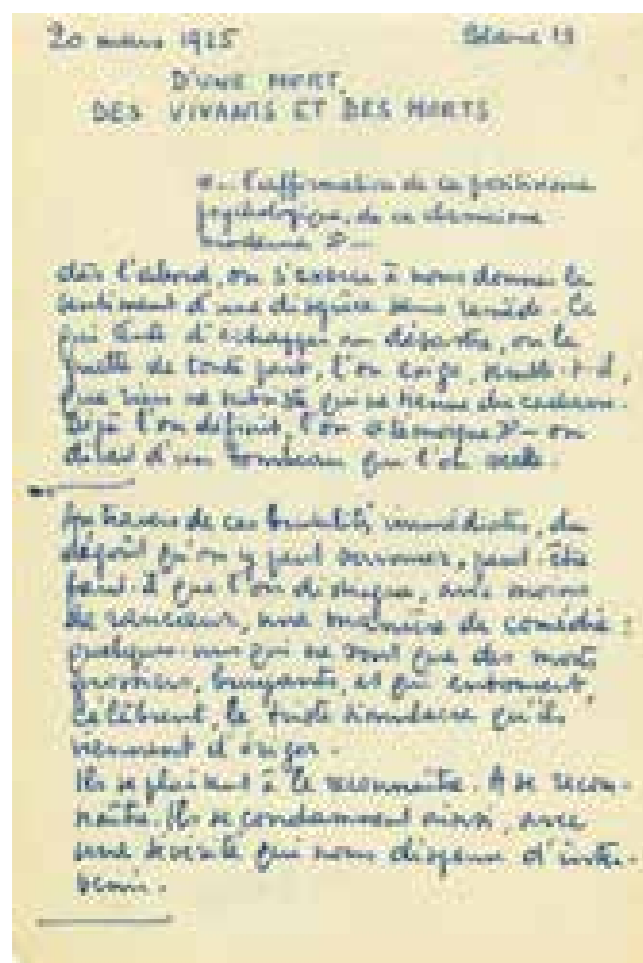 20 mars 1925
D'UNE MORT
DES VIVANTS ET DES MORTS
« — l'affirmation de ce positivisme
psychologique, de ce
moderne » —
dès l'abord, on s'exerce à nous donner le
sentiment d'une disgrâce sans remède. Ce
qui tente d'échapper au désastre, on le
guette de toute part, l'on exige, semble-t-il,
que rien ne subsiste qui ne tienne du cadavre.
Déjà l'on définit, l'on — on
dirait d'un tombeau que l'on scelle.
Au travers de ces brutalités immédiates, du
dégoût qu'on y peut surmonter, peut-être
faut-il que l'on distingue, avec moins
de rancœur, une manière de comédie :
quelques-uns qui ne sont que des morts
grossiers, bruyants, et qui entourent,
célèbrent, le triste simulacre qu'ils
viennent d'ériger.
Ils se plaisent à le reconnaître. A se recon-
naître. Ils se condamnent ainsi, avec
une sévérité qui nous dispense d'inter-
venir.